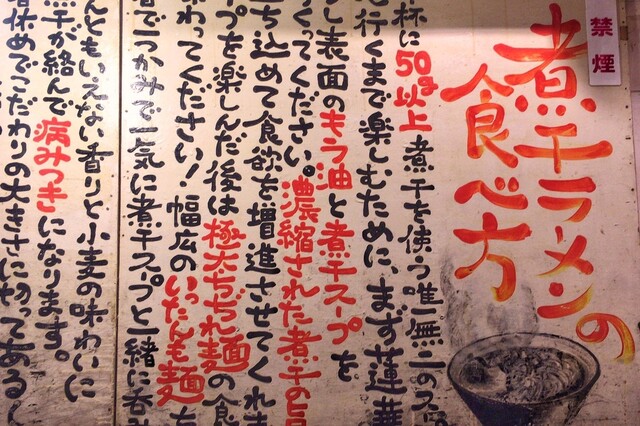 禁煙
煮干ラーメンの
食べ方
杯に50g以上煮干を使う唯一無二のス
行くまで楽しむために、まず蓮華
し表面のもう油と煮干スープを
くってください。濃縮された煮干の旨
ち込めて食欲を増進させてくれま
プを楽しんだ後は極太ちぢれ麺の食
わってください!幅広のいったんも麺も
でつかみで一気に煮干スープと一緒に呑み
んともいえない香りと小麦の味わいに
干が絡んで病みつきになります。
休めでこだわりの大きさに切ってある